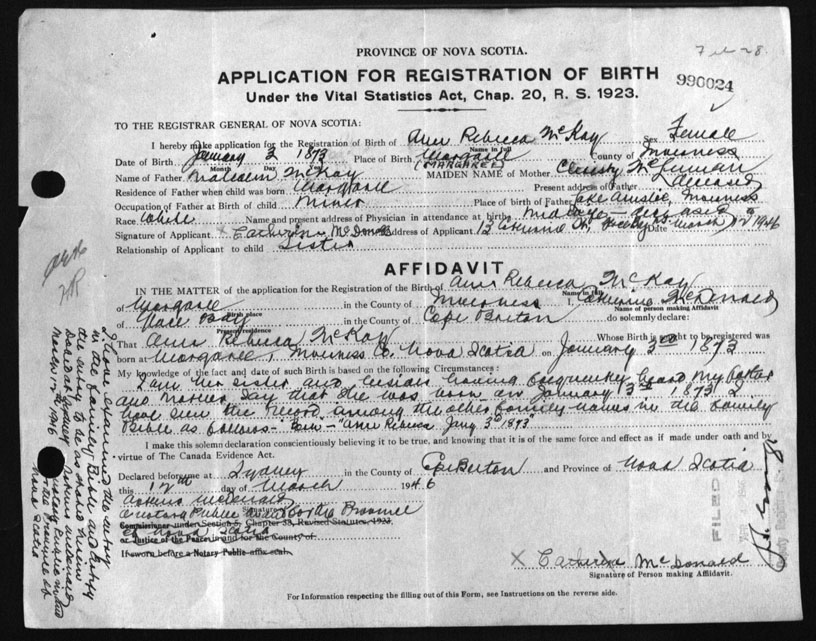 PROVINCE OF NOVA SCOTIA.
APPLICATION FOR REGISTRATION OF BIRTH
990024
Under the Vital Statistics Act, Chap. 20, R. S. 1923.
TO THE REGISTRAR GENERAL OF NOVA SCOTIA:
I hereby make application for the Registration of Birth of Ann Rebecca McKay Sex Female
Name in full
Date of Birth January 3 1873 Place of Birth Margaree County of Inverness
Month Day (MARGARET)
Name of Father Malcolm McKay MAIDEN NAME of Mother Christy
Residence of Father when child was born Margaree Present address of Father Deceased
Occupation of Father at Birth of Child Miner Place of birth of Father Lake Ainslie, Inverness
Race Name and present address of Physician in attendance at birth Midwife - deceased
Signature of Applicant Catherine McDonald Address of Applicant 13 Date March 1946
Relationship of Applicant to child Sister
AFFIDAVIT
IN THE MATTER of the application for the Registration of the Birth of Ann Rebecca McKay
Name in full
of Margaree in the County of Inverness I, Catherine McDonald
Birth place Name of person making Affidavit
of Glace Bay in the County of Cape Breton do solemnly declare:
Present residence
That Anna Rebecca McKay Whose Birth is sought to be registered was
born at Margaree, Inverness Co. Nova Scotia on January 3rd 1873
My knowledge of the fact and date of such Birth is based on the following Circumstances:
I am her sister and having frequently heard my Father
and Mother say that she was born on January 1873 I
have seen the record among the other family names in the family
Bible as follows- "Born - "Ann Rebecca Jany 3rd 1873
I make this solemn declaration conscientiously believing it to be true, and knowing that it is of the same force and effect as if made under oath and by
virtue of The Canada Evidence Act.
Declared before me at Sydney in the County of Cape Breton and Province of Nova Scotia
this 12th day of March 1946
McDonald
Signature
A Notary Public in and for the Province
Commissioner under Section 5, Chapter 38, Revised Statutes, 1923.
of Nova Scotia
or Justice of the Peace in and for the County of
If sworn before a Notary Public affix seal.
X Catherine McDonald
Signature of Person making Affidavit.
For Information respecting the filling out of this Form, see Instructions on the reverse side.
FILED
I have examined the entry
in the family Bible and
the entry to be as stated herein
Dated at Sydney
March 12th 1946
McDonald
Nova Scotia